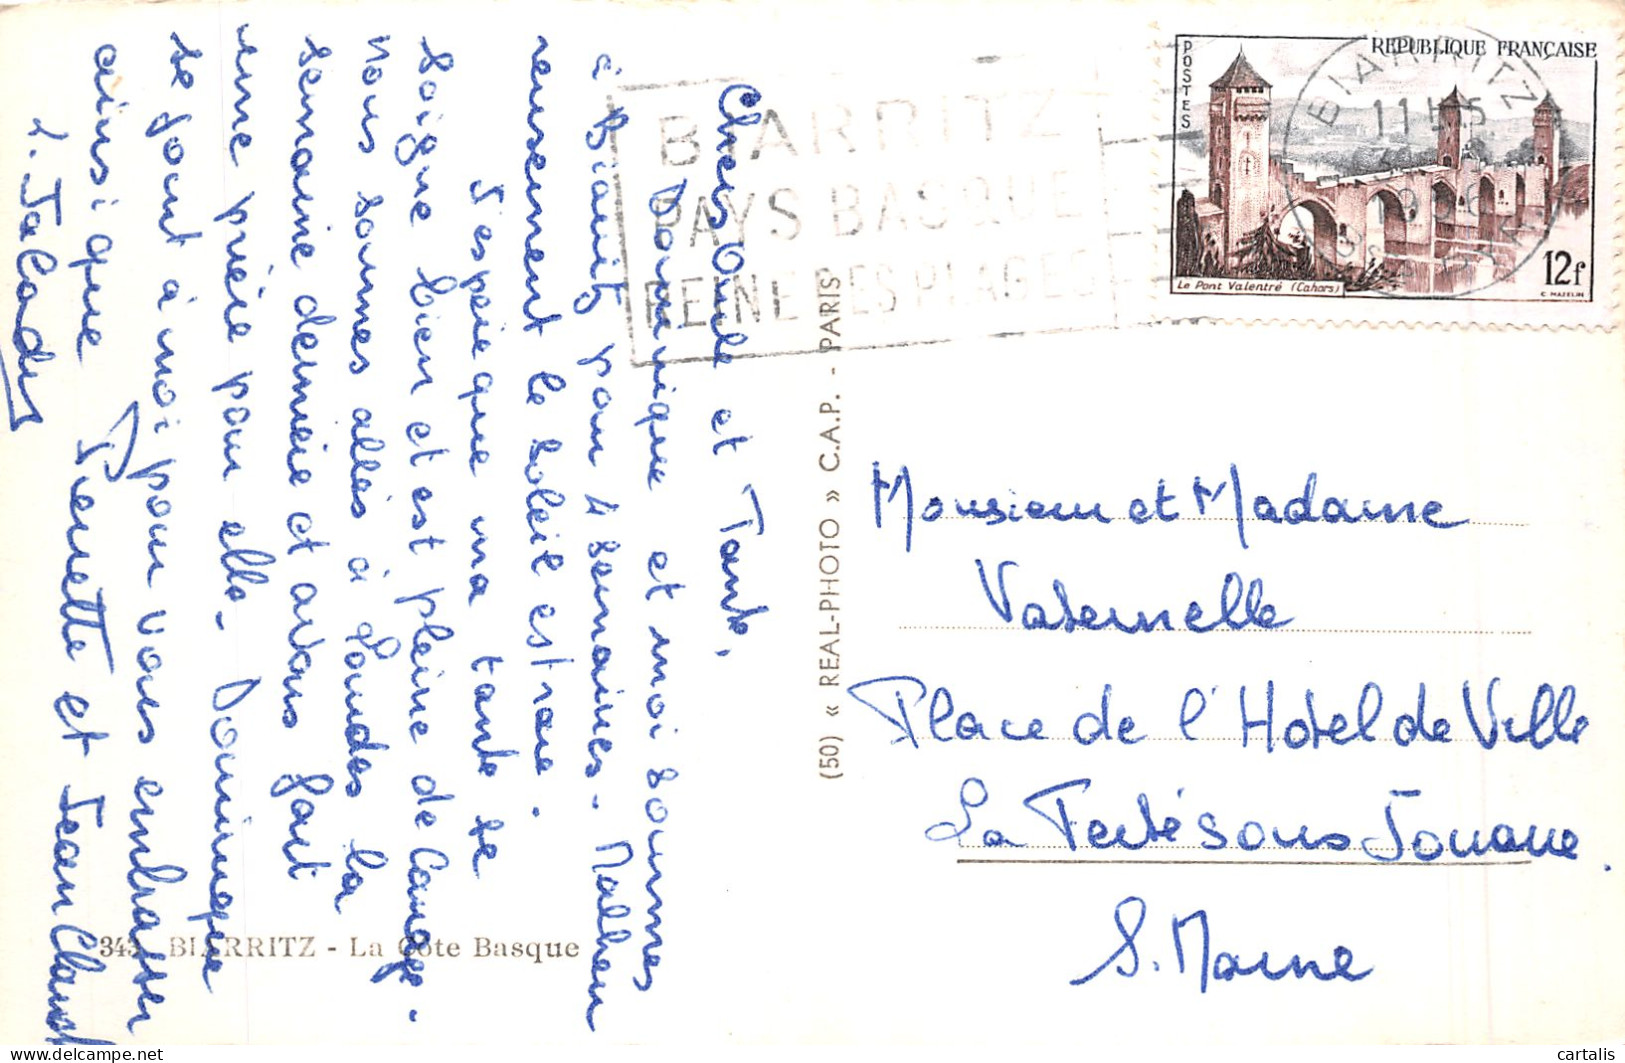 Chers Oncle et Tante,
Dominique et moi sommes
à Biarritz pour 4 semaines. Malheu
reusement le soleil est rare.
J'espère que ma tante se
soigne bien et est pleine de courage.
Nous sommes allés à Lourdes la
semaine dernière et avons fait
une prière pour elle. Dominique
se joint à moi pour vous embrasser
ainsi que Pierrette et Jean Claude
(50) « REAL-PHOTO » C.A.P. - PARIS
343 BIARRITZ - La Côte Basque
BIARRITZ
PAYS BASQUE
REINE DES PLAGES
BIARRITZ
POSTES
REPUBLIQUE FRANÇAISE
Le Pont Valentré (Cahors)
12f
C. MAZELIN
Monsieur et Madame
Vaternelle
Place de l'Hotel de Ville
La Ferté sous Jouarre.
S. Marne
cartalis